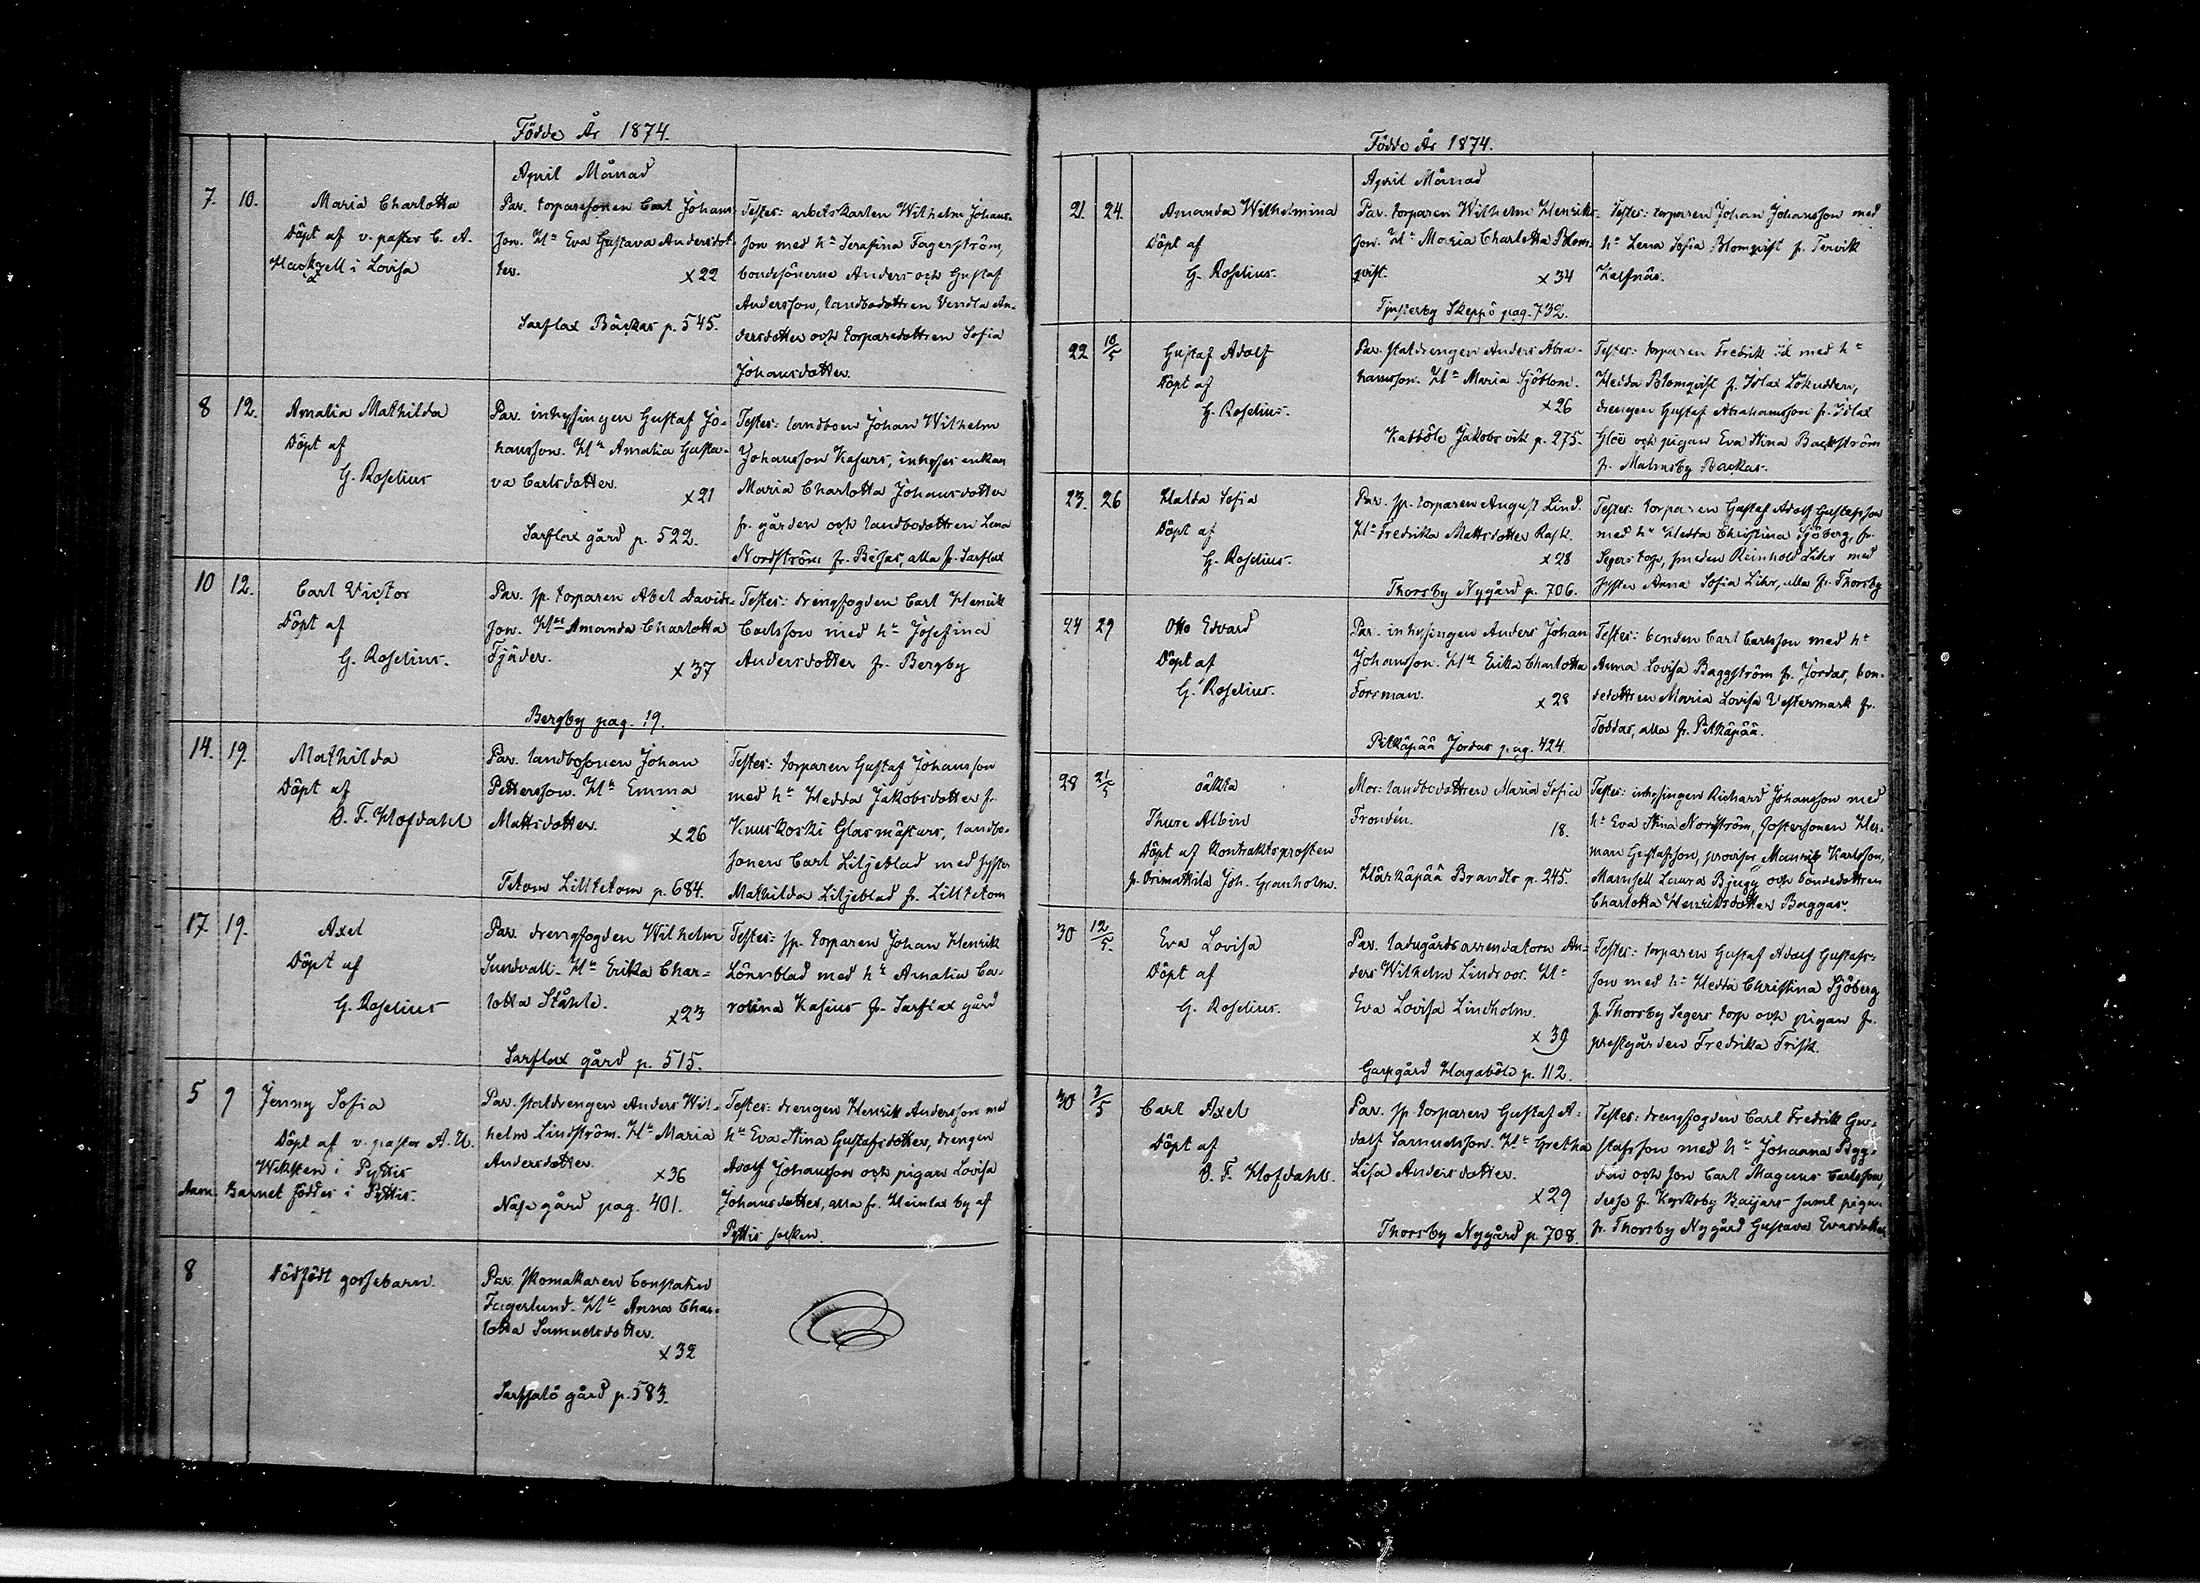 Födde År 1874.
April Månad
7. 10. Maria Charlotta
Döpt af v. pastor C. A.
Hackzell i Lovisa
Par. torparesonen Carl Johans-
son. H:u Eva Gustava Andersdot-
ter. x22
Sarflax Bäckas p. 545.
Testes: arbetskarlen Wilhelm Johans-
son med h:u Serafina Fagerström,
bondesönerna Anders och Gustaf
Andersson, landbodottren Vendla An-
dersdotter och torparedottren Sofia
Johansdotter.
8 12. Amalia Mathilda
Döpt af
G. Roselius
Par. inhysingen Gustaf Jo-
hansson. H:u Amalia Gusta-
va Carlsdotter. x21
Sarflax gård p. 522.
Testes: landboen Johan Wilhelm
Johansson Kasurs, inhyses enkan
Maria Charlotta Johansdotter
fr. gården och landbodottren Lena
Nordström fr. Bisas, alla fr. Sarflax
10 12. Carl Victor
Döpt af
G. Roselius.
Par. sp. torparen Abel Davids-
son. H:u Amanda Charlotta
Tjäder. x37
Bergby pag. 19.
Testes: drengfogden Carl Henrik
Carlsson med h:u Josefina
Andersdotter fr. Bergby
14. 19. Mathilda
Döpt af
B. F. Hofdahl
Par. landbosonen Johan
Pettersson. H:u Emma
Mattsdotter. x26
Tetom Lilltetom p. 684.
Testes: torparen Gustaf Johansson
med h:u Hedda Jakobsdotter fr.
Kuuskoski Glasmästars, landbo-
sonen Carl Liljeblad med syster
Mathilda Liljeblad fr. Lilltetom
17 19. Axel
Döpt af
G. Roselius
Par. drengfogden Wilhelm
Sundvall. H:u Erika Char-
lotta Ståhle. x23
Sarflax gård p. 515.
Testes: sp. torparen Johan Henrik
Lönnblad med h:u Amalia Ca-
rolina Kasius fr. Sarflax gård
5 9 Jenny Sofia
Döpt af v. pastor A. U.
Wiksten i Pyttis
Anm. Barnet föddes i Pyttis.
Par. staldrengen Anders Wil-
helm Lindström. H:u Maria
Andersdotter. x36
Näse gård pag. 401.
Testes: drengen Henrik Andersson med
h:u Eva Stina Gustafsdotter, drengen
Adolf Johansson och pigan Lovisa
Johansdotter, alla fr. Heinlax by af
Pyttis socken
8 Dödfödt gossebarn.
Par. skomakaren Constatin
Fagerlund. H:u Anna Char-
lotta Samuelsdotter.
x32
Sarfsalö gård p. 583.
Födde År 1874.
April Månad
21. 24. Amanda Wilhelmina
Döpt af
G. Roselius.
Par. torparen Wilhelm Henriks-
son. H:u Maria Charlotta Blom-
qvist. x34
Tjusterby Skeppö pag. 732.
Testes: torparen Johan Johansson med
h:u Lena Sofia Blomqvist fr. Tervik
Kalfnäs.
22 10/5 Gustaf Adolf
Döpt af
G. Roselius.
Par. staldrengen Anders Abra-
hamsson. H:u Maria Sjöblom.
x26
Kabböle Jakobsvik p. 275.
Testes: torparen Fredrik Id med h:u
Hedda Blomqvist fr. Islax Lökudden,
drengen Gustaf Abrahamsson fr. Islax
Gloe och pigan Eva Stina Backström
fr. Malmsby Backas.
23. 26 Hulda Sofia
Döpt af
G. Roselius.
Par. sp. torparen August Lind.
H:u Fredrika Mattsdotter Rask.
x28
Thorsby Nygård p. 706.
Testes: torparen Gustaf Adolf Gustafsson
med h:u Hedda Christina Sjöberg, fr.
Segers torp, smeden Reinhold Lihr med
syster Anna Sofia Lihr, alla fr. Thorsby
24 29 Otto Edvard
Döpt af
G. Roselius.
Par. inhysingen Anders Johan
Johansson. H:u Erika Charlotta
Forsman. x28
Pitkäpää Jordas pag. 424.
Testes: bonden Carl Carlsson med h:u
Anna Lovisa Baggström fr. Jordas, bon-
dedottren Maria Lovisa Vestermark fr.
Toddas, alla fr. Pitkäpää.
28 21/5 oäkta
Thure Albin
Döpt af Kontraktsprosten
fr. Orimattila Joh. Granholm.
Mor: landbodottren Maria Sofia
Frondén. 18.
Härkäpää Brandts p. 245.
Testes: inhysingen Richard Johansson med
h:u Eva Stina Nordström, fostersonen Her-
man Gustafsson, provisor Mauritz Karlsson,
Mamsell Laura Bjugg och bondedottren
Charlotta Henriksdotter Baggas.
30 12/5. Eva Lovisa
Döpt af
G. Roselius.
Par. ladugårdsarrendatorn An-
ders Wilhelm Lindroos. H:u
Eva Lovisa Lindholm.
x 39
Garpgård Hagaböle p. 112.
Testes: torparen Gustaf Adolf Gustafs-
son med h:u Hedda Christina Sjöberg
fr. Thorsby Segers torp och pigan fr.
prestgården Fredrika Frisk.
30 3/5 Carl Axel
Döpt af
B. F. Hofdahl.
Par. sp. torparen Gustaf A-
dolf Samuelsson. H:u Gretha
Lisa Andersdotter.
x29
Thorsby Nygård p. 708.
Testes: drengfogden Carl Fredrik Gu-
stafsson med h:u Johanna Bygg-
dén och son Carl Magnus Carlsson,
desse fr. Kyrkoby Baijars samt pigan
fr. Thorsby Nygård Gustava Evasdotter